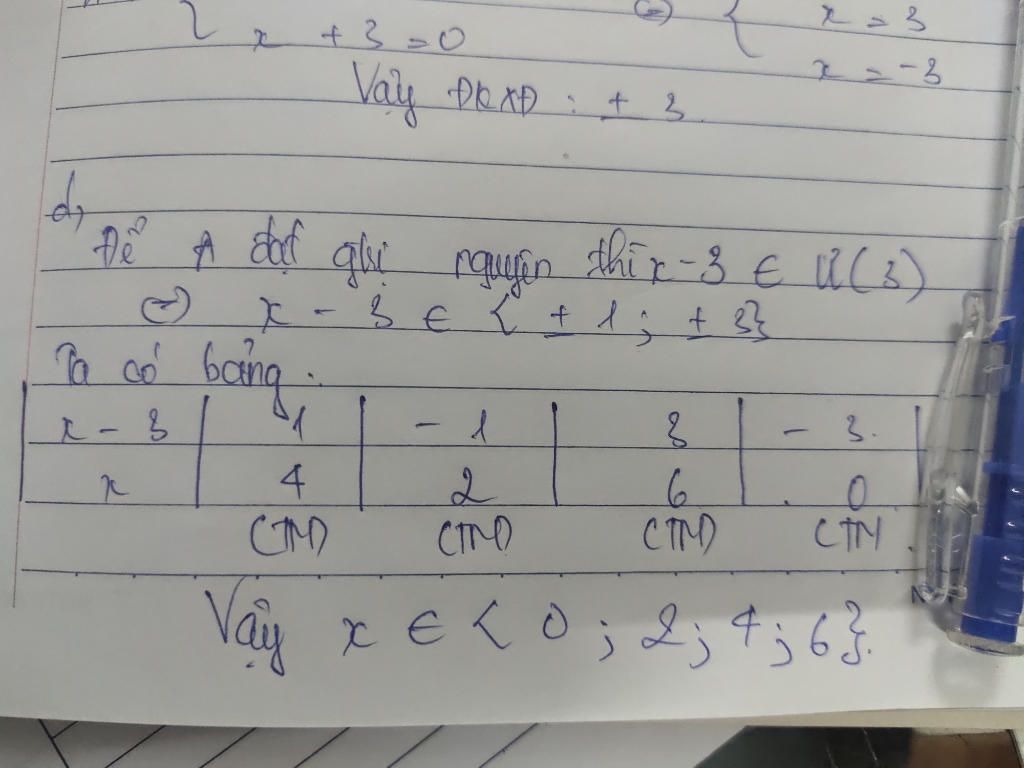 x + 3 = 0 (=) { x = 3
x = -3
Vậy ĐKXĐ : ± 3
d,
Để A đạt gtrị nguyên thì x - 3 ∈ Ư(3)
(=) x - 3 ∈ { ± 1 ; ± 3}
Ta có bảng :
x - 3 | 1 | - 1 | 3 | - 3
x | 4 | 2 | 6 | 0
(TM) (TM) (TM) (TM
Vậy x ∈ { 0 ; 2 ; 4 ; 6}.